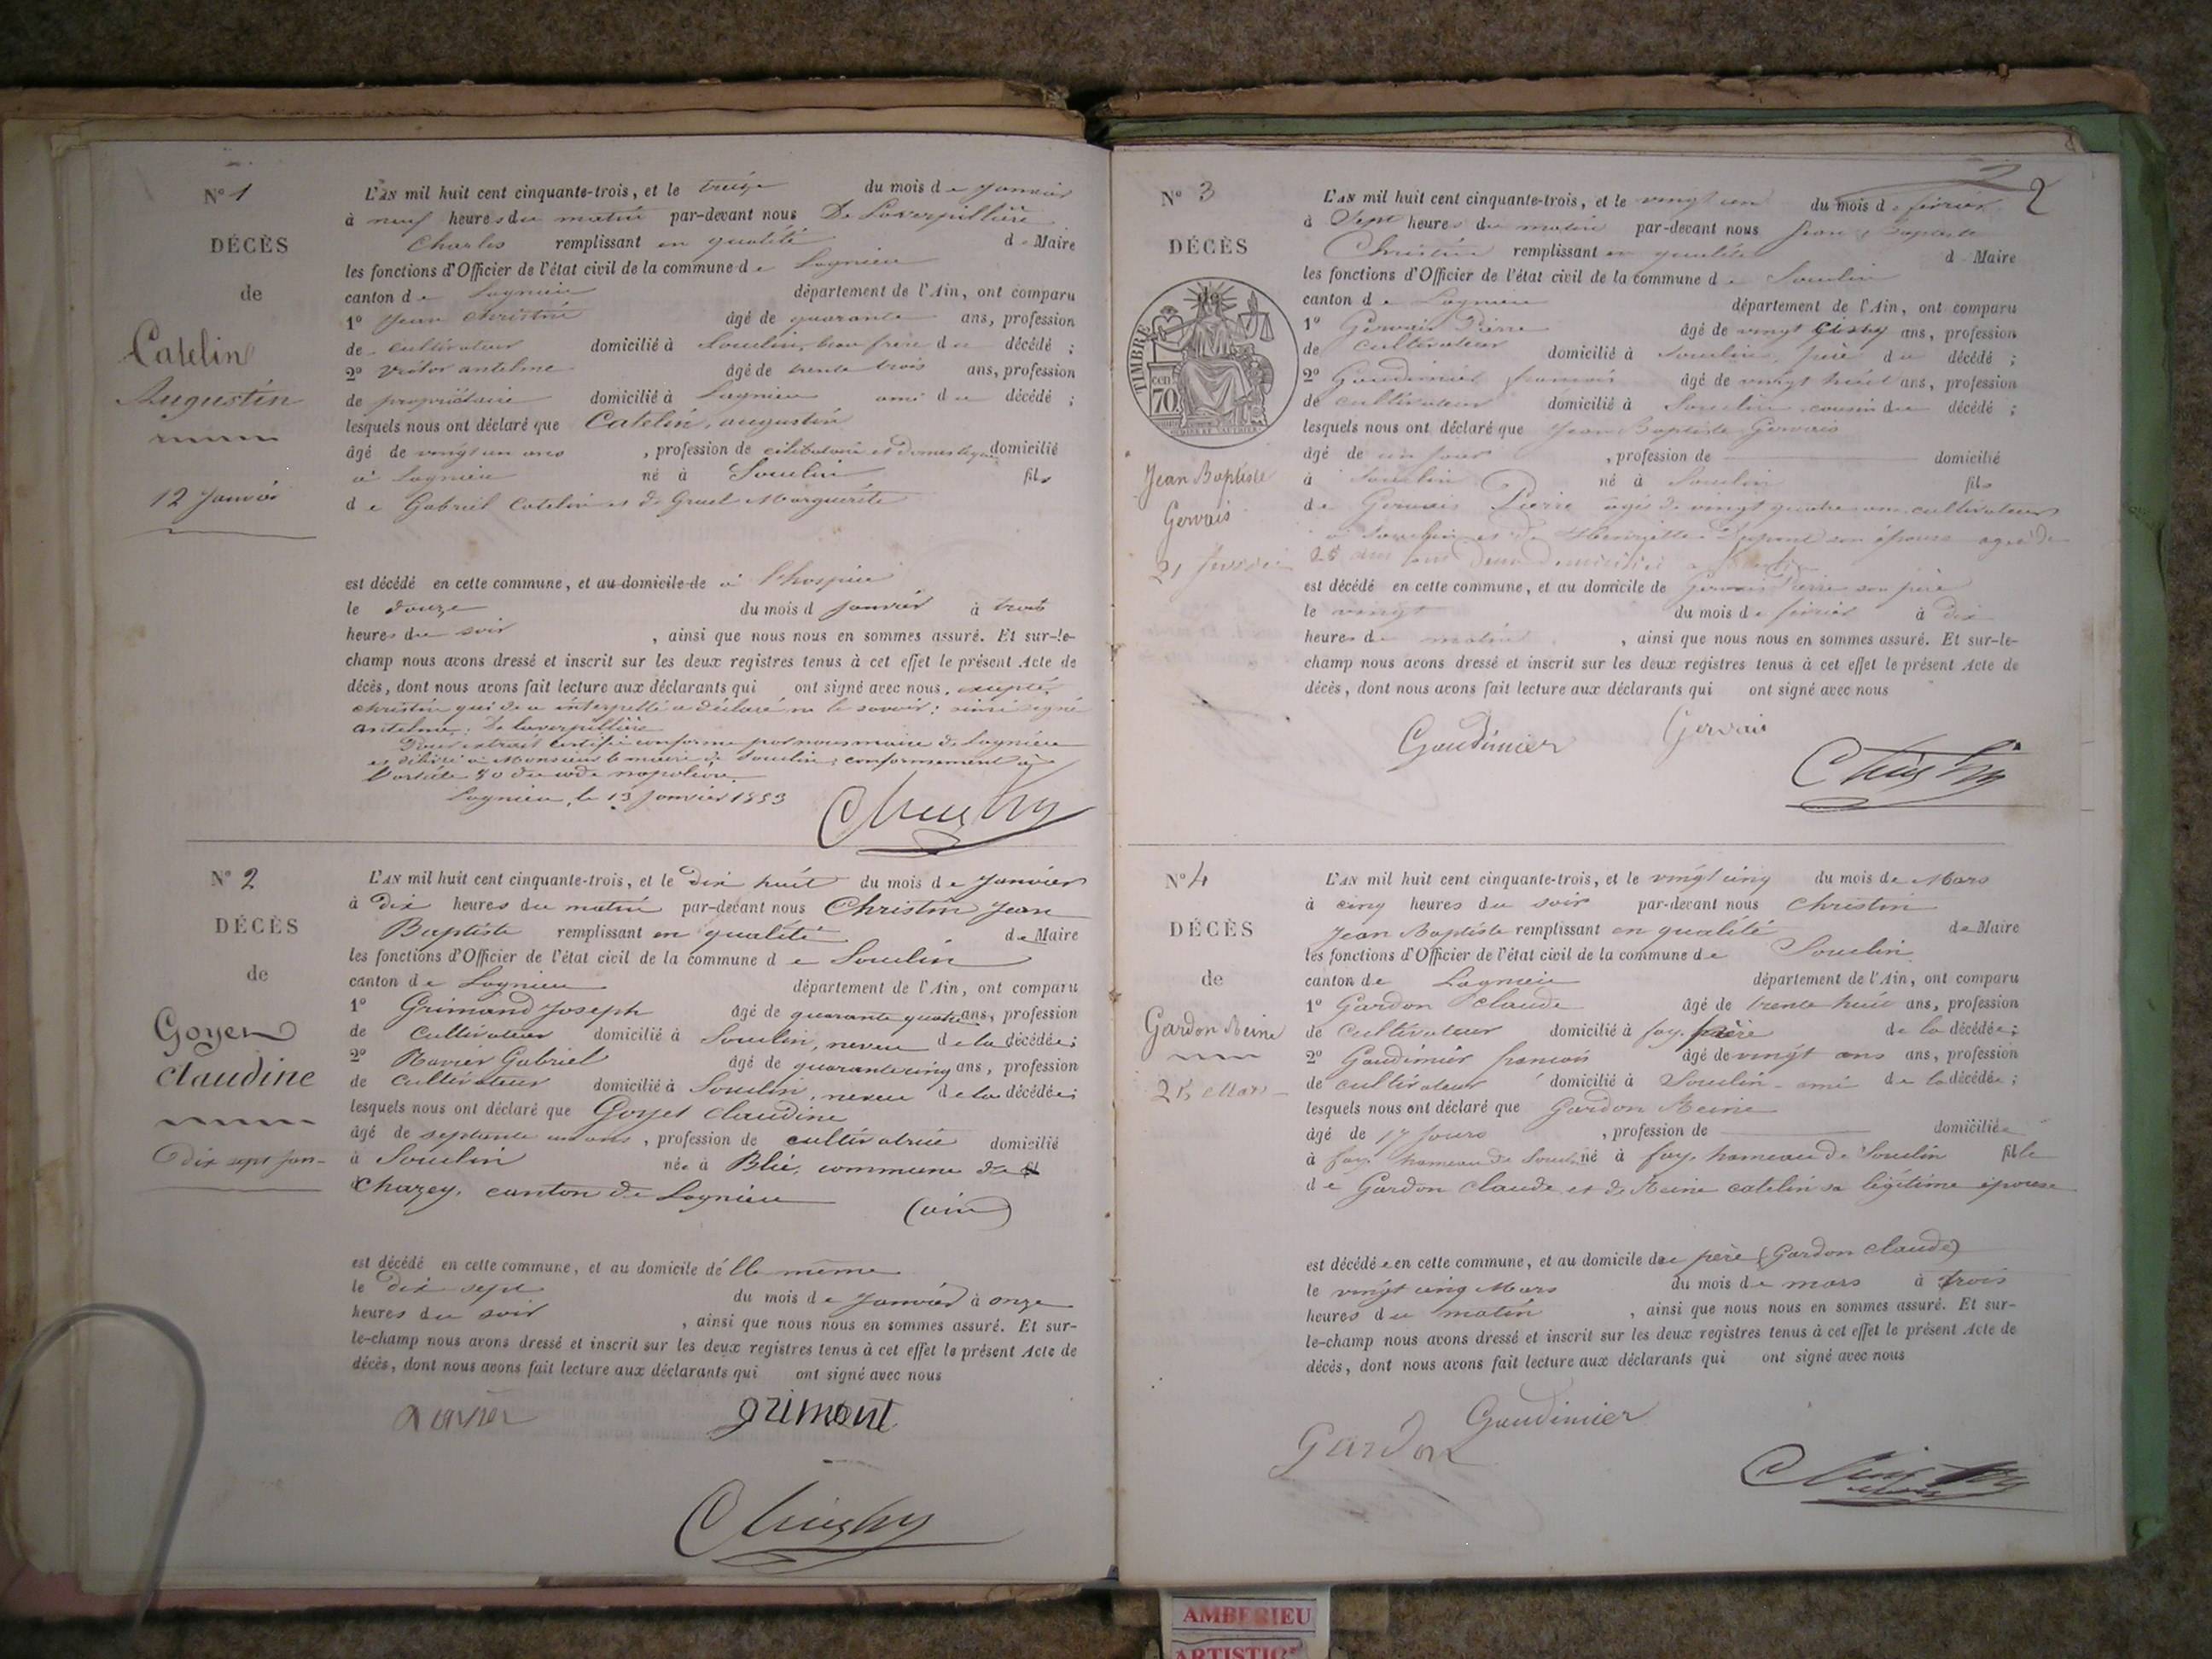 Nº 1
DÉCÈS
de
Catelin
Augustin
12 Janvier
L'AN mil huit cent cinquante-trois, et le treize du mois de Janvier
à neuf heures du matin par-devant nous De Laverpillière
Charles remplissant en qualité de Maire
les fonctions d'Officier de l'état civil de la commune de Lagnieu
canton de Lagnieu département de l'Ain, ont comparu
1º Jean Christin âgé de quarante ans, profession
de cultivateur domicilié à Souclin, beau frère du décédé ;
2º Victor antelme âgé de trente trois ans, profession
de propriétaire domicilié à Lagnieu ami du décédé ;
lesquels nous ont déclaré que Catelin, augustin
âgé de vingt un ans , profession de célibataire et domestique domicilié
à Lagnieu né à Souclin fils
de Gabriel Catelin et de Gruel Marguerite
est décédé en cette commune, et au domicile de à l'hospice
le douze du mois d Janvier à trois
heures du soir , ainsi que nous nous en sommes assuré. Et sur-le-
champ nous avons dressé et inscrit sur les deux registres tenus à cet effet le présent Acte de
décès, dont nous avons fait lecture aux déclarants qui ont signé avec nous, excepté
christin qui de ce interpellé a déclaré ne le savoir : ainsi signé
antelme, De laverpillière
Pour extrait certifié conforme par nous maire de Lagnieu
et délivré à Monsieur le maire de Souclin, conformément à
l'article 80 du code napoléon.
Lagnieu, le 13 Janvier 1853
Christin
Nº 2
DÉCÈS
de
Goyet
claudine
Dix sept Jan-
L'AN mil huit cent cinquante-trois, et le dix huit du mois de Janvier
à dix heures du matin par-devant nous Christin Jean
Baptiste remplissant en qualité de Maire
les fonctions d'Officier de l'état civil de la commune de Souclin
canton de Lagnieu département de l'Ain, ont comparu
1º Grimand Joseph âgé de quarante quatre ans, profession
de Cultivateur domicilié à Souclin, neveu de la décédée ;
2º Ravier Gabriel âgé de quarante cinq ans, profession
de Cultivateur domicilié à Souclin, neveu de la décédée ;
lesquels nous ont déclaré que Goyet claudine
âgé de septante un ans , profession de cultivatrice domicilié
à Souclin née à Blié, commune de
Chazey, canton de Lagnieu (ain)
est décédé en cette commune, et au domicile d'elle même
le dix sept du mois de Janvier à onze
heures du soir , ainsi que nous nous en sommes assuré. Et sur-
le-champ nous avons dressé et inscrit sur les deux registres tenus à cet effet le présent Acte de
décès, dont nous avons fait lecture aux déclarants qui ont signé avec nous
ravier grimont
Christin
2
Nº 3
DÉCÈS
de
TIMBRE
70 cen
Jean Baptiste
Gervais
L'AN mil huit cent cinquante-trois, et le vingt un du mois de février
à Sept heures du matin par-devant nous Jean Baptiste
Christin remplissant en qualité d Maire
les fonctions d'Officier de l'état civil de la commune de Souclin
canton de Lagnieu département de l'Ain, ont comparu
1º Gervais Pierre âgé de vingt ans, profession
de cultivateur domicilié à Souclin, père du décédé ;
2º Gaudimier françois âgé de vingt huit ans, profession
de cultivateur domicilié à Souclin cousin du décédé ;
lesquels nous ont déclaré que Jean Baptiste Gervais
âgé de un jour , profession de domicilié
à Souclin né à Souclin fils
de Gervais Pierre âgé de vingt quatre ans cultivateur
à Souclin et de Henriette son épouse agée de
25 ans
est décédé en cette commune, et au domicile de Gervais Pierre son père
le vingt du mois de février à dix
heures du matin , ainsi que nous nous en sommes assuré. Et sur-le-
champ nous avons dressé et inscrit sur les deux registres tenus à cet effet le présent Acte de
décès, dont nous avons fait lecture aux déclarants qui ont signé avec nous
Gaudimier Gervais
Christin
Nº 4
DÉCÈS
de
Gardon Reine
25 Mars
L'AN mil huit cent cinquante-trois, et le vingt cinq du mois de Mars
à cinq heures du soir par-devant nous Christin
Jean Baptiste remplissant en qualité de Maire
les fonctions d'Officier de l'état civil de la commune de Souclin
canton de Lagnieu département de l'Ain, ont comparu
1º Gardon Claude âgé de trente huit ans, profession
de Cultivateur domicilié à fay, père de la décédée ;
2º Gaudimier françois âgé de vingt ans ans, profession
de cultivateur domicilié à Souclin - ami de la décédée ;
lesquels nous ont déclaré que Gardon Reine
âgé de 17 jours , profession de domiciliée
à fay, hameau de Souclin né à fay, hameau de Souclin fille
de Gardon Claude et de Reine catelin sa légitime épouse
est décédée en cette commune, et au domicile du père (Gardon claude)
le vingt cinq Mars du mois de mars à trois
heures du matin , ainsi que nous nous en sommes assuré. Et sur-
le-champ nous avons dressé et inscrit sur les deux registres tenus à cet effet le présent Acte de
décès, dont nous avons fait lecture aux déclarants qui ont signé avec nous
Gaudimier
Gardon
Christin
AMBERIEU
ARTISTIC